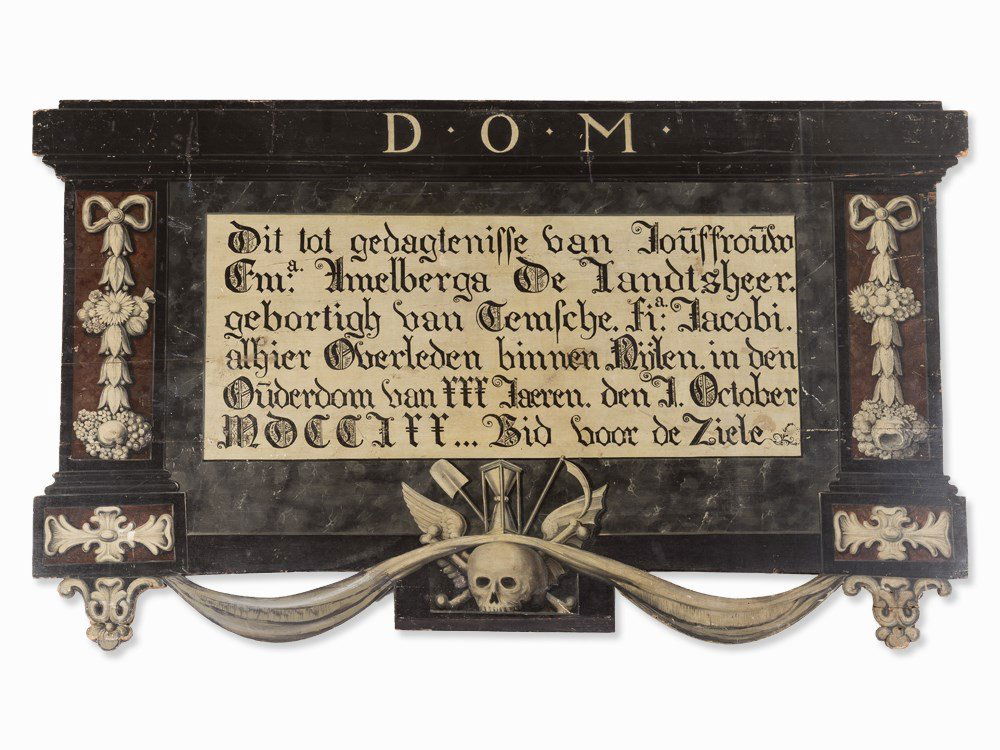 D · O · M ·
Dit tot gedagtenisse van Joŭffroŭw
Em.ᵃ Amelberga De Landtsheer.
gebortigh van Temsche. fi.ᵃ Jacobi.
alhier Overleden binnen Nijlen. in den
Oŭderdom van XXX Jaeren. den J. October
MDCCLXX... Bid voor de Ziele